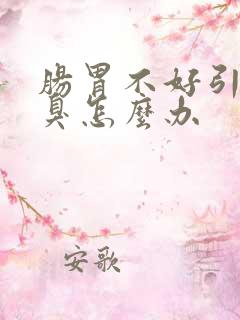 腸胃不好引
臭怎麼办
安歌